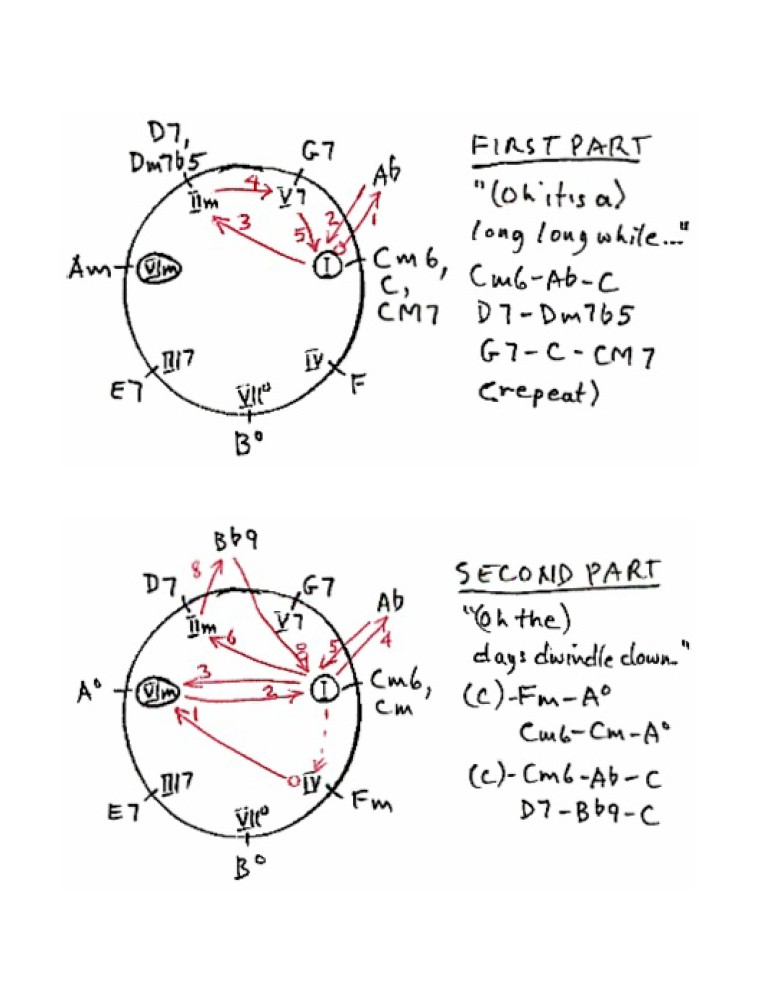 D7,
Dm7b5
G7
Ab
IIm
4
V7
3
5
2
1
Am
VIm
I
Cm6,
C,
CM7
III7
E7
IV
F
VII°
B°
FIRST PART
"(Oh it is a)
long long while..."
Cm6-Ab-C
D7-Dm7b5
G7-C-CM7
(repeat)
Bb9
8
D7,
G7
Ab
IIm
6
V7
5
4
3
2
A°
VIm
I
Cm6,
Cm
1
III7
E7
IV
Fm
VII°
B°
SECOND PART
"(Oh the)
days dwindle down..."
(C)-Fm-A°
Cm6-Cm-A°
(C)-Cm6-Ab-C
D7-Bb9-C